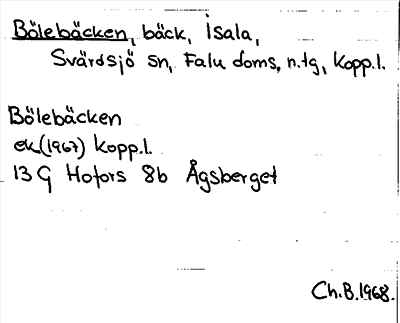 Bölebäcken, bäck, Isala,
Svärdsjö sn, Falu doms, n.tg, Kopp.l.
Bölebäcken
ek.(1967) Kopp.l.
13 G Hofors 8b Ågsberget
Ch.B.1968.